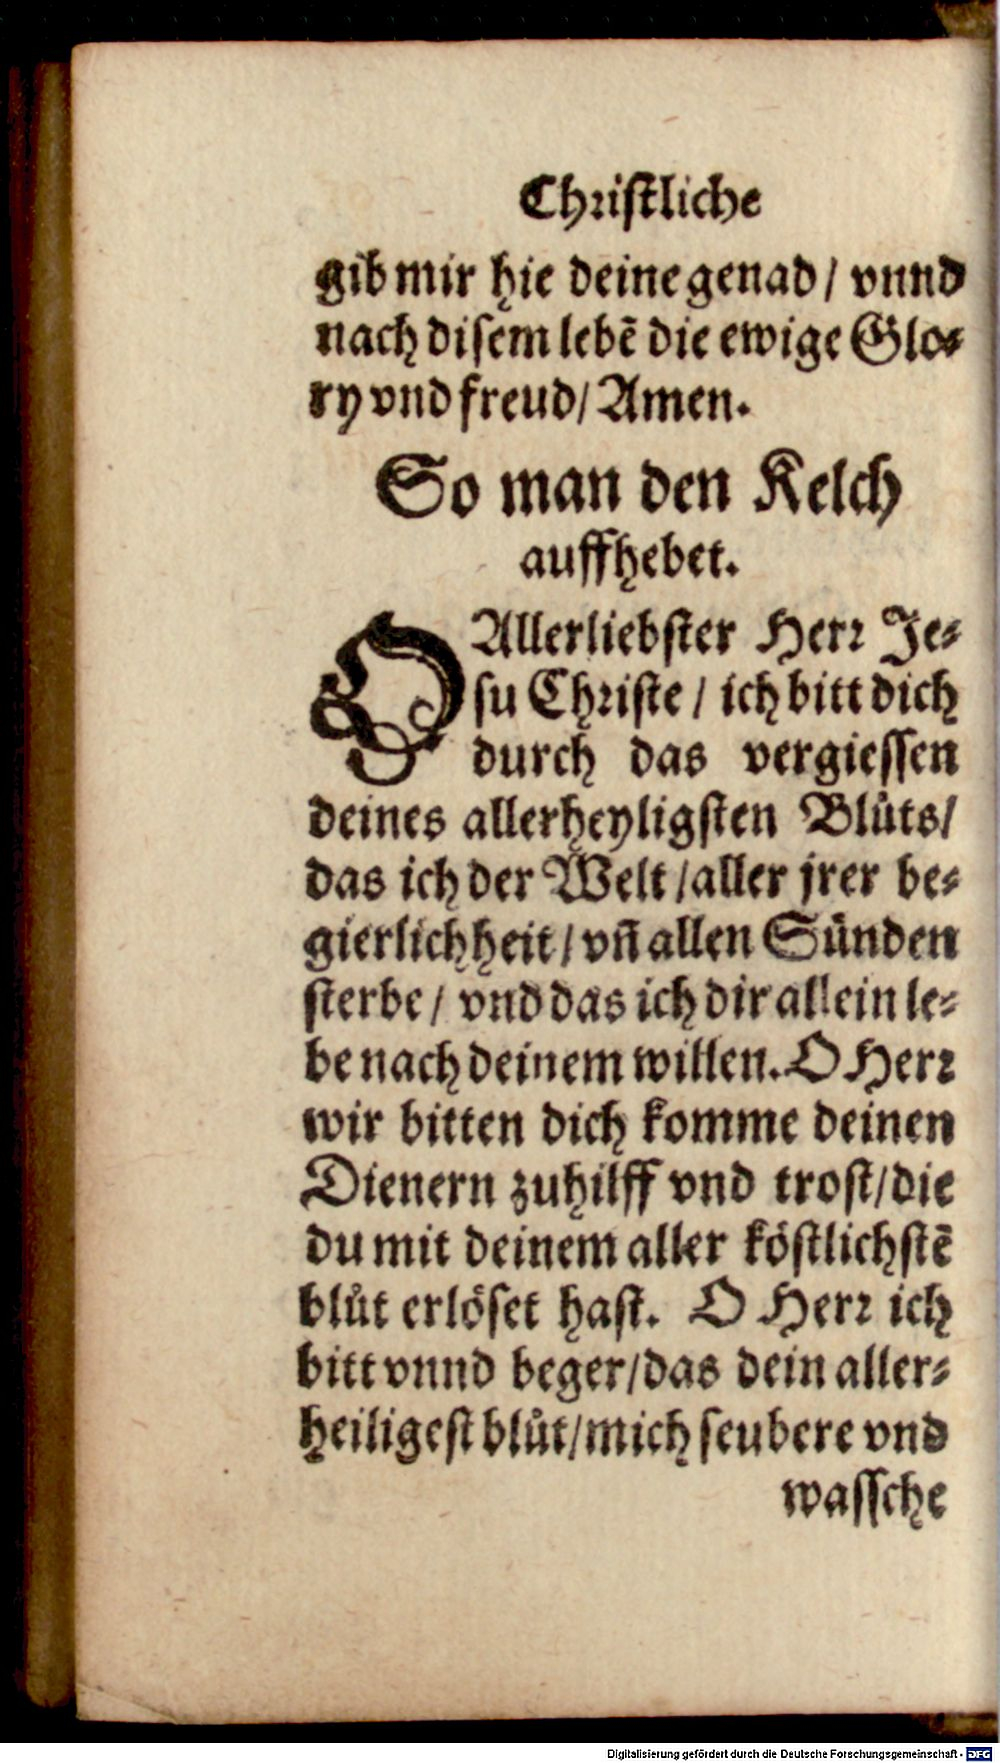 Christliche
gib mir hie deine genad / vnnd
nach disem lebē die ewige Glo⸗
ry vnd freud / Amen.
So man den Kelch
auffhebet.
O Allerliebster Herr Je⸗
su Christe / ich bitt dich
durch das vergiessen
deines allerheyligsten Blůts /
das ich der Welt / aller jrer be⸗
gierlichheit / vñ allen Sünden
sterbe / vnd das ich dir allein le⸗
be nach deinem willen. O Herr
wir bitten dich komme deinen
Dienern zuhilff vnd trost / die
du mit deinem aller köstlichstē
blůt erlöset hast. O Herr ich
bitt vnnd beger / das dein aller⸗
heiligest blůt / mich seubere vnd
wassche
Digitalisierung gefördert durch die Deutsche Forschungsgemeinschaft - DFG